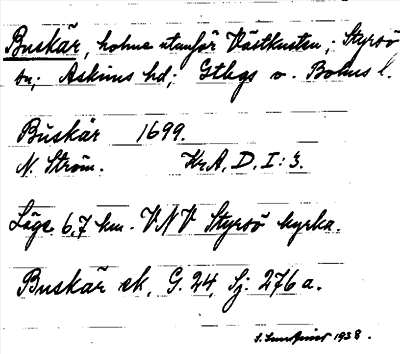 Buskär, holme utanför Västkusten; Styrsö
sn; Askims hd; Gtbgs o. Bohus l.
Buskär 1699.
N. Ström. Kr.A, D. I: 3.
Läge 6,7 km. VNV Styrsö kyrka.
Buskär ek, G. 24, Sj. 276 a.
S. Sundqvist 1938.